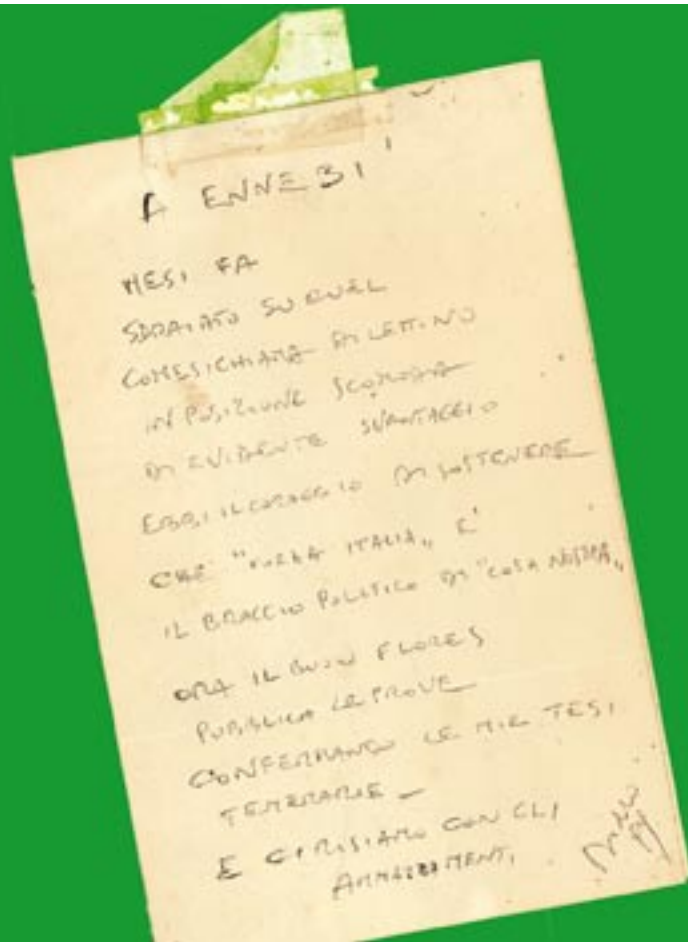 A ENNEBI'
MESI FA
SDRAIATO SU QUEL
COMESICHIAMA DI LETTINO
IN POSIZIONE SCOMODA
DI EVIDENTE SVANTAGGIO
EBBI IL CORAGGIO DI SOSTENERE
CHE "FORZA ITALIA„ E'
IL BRACCIO POLITICO DI "COSA NOSTRA„
ORA IL BUON FLORES
PUBBLICA LE PROVE
CONFERMANDO LE MIE TESI
TEMERARIE –
E CI RISIAMO CON GLI
AMMAZZAMENTI